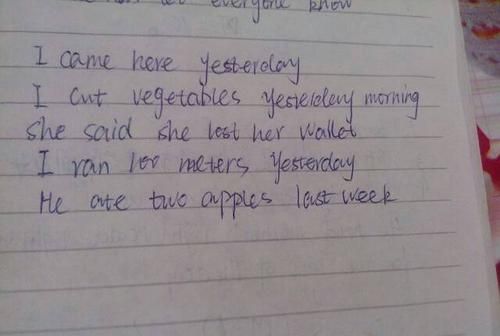 everyone know
I came here yesterday
I cut vegetables yesterday morning
She said she lost her wallet
I ran 100 meters yesterday
He ate two apples last week